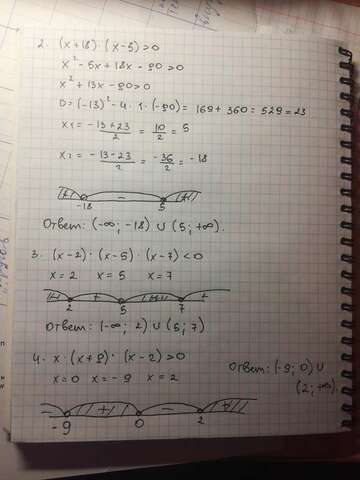 2. (x+18) · (x-5) > 0
x² - 5x + 18x - 90 > 0
x² + 13x - 90 > 0
D = (-13)² - 4 · 1 · (-90) = 169 + 360 = 529 = 23
x1 = -13+23/2 = 10/2 = 5
x2 = -13-23/2 = -36/2 = -18
+ - +
-18 5
Ответ: (-∞; -18) ∪ (5; +∞).
3. (x-2) · (x-5) · (x-7) < 0
x = 2 x = 5 x = 7
- + - +
2 5 7
Ответ: (-∞; 2) ∪ (5; 7)
4. x · (x+9) · (x-2) > 0
x = 0 x = -9 x = 2
Ответ: (-9; 0) ∪
(2; +∞)
+ - +
-9 0 2